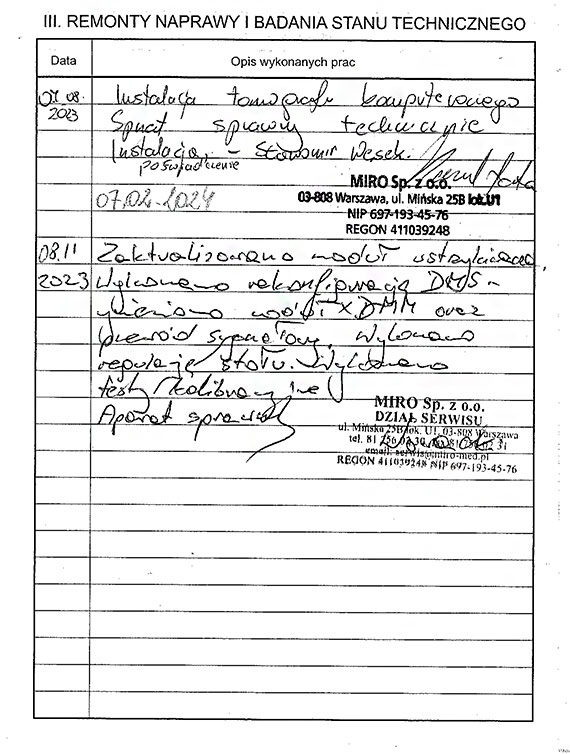 III. REMONTY NAPRAWY I BADANIA STANU TECHNICZNEGO
Data
Opis wykonanych prac
07.08.
2023
Instalacja tomografu komputerowego
Sprzęt sprawny technicznie
Instalację - Sławomir Wesek.
poświadczenie
07.02.2024
MIRO Sp. z o.o.
03-808 Warszawa, ul. Mińska 25B lok.U1
NIP 697-193-45-76
REGON 411039248
08.11
2023
Zaktualizowano moduł
Wykonano rekonfigurację DMS -
wymieniono moduł XDMM oraz
przewód sygnałowy. Wykonano
regulację stołu. Wykonano
testy/kalibracyjne
Aparat sprawny
MIRO Sp. z o.o.
DZIAŁ SERWISU
ul. Mińska 25B lok. U1, 03-808 Warszawa
tel. 81
email: serwis@miro-med.pl
REGON 411039248 NIP 697-193-45-76